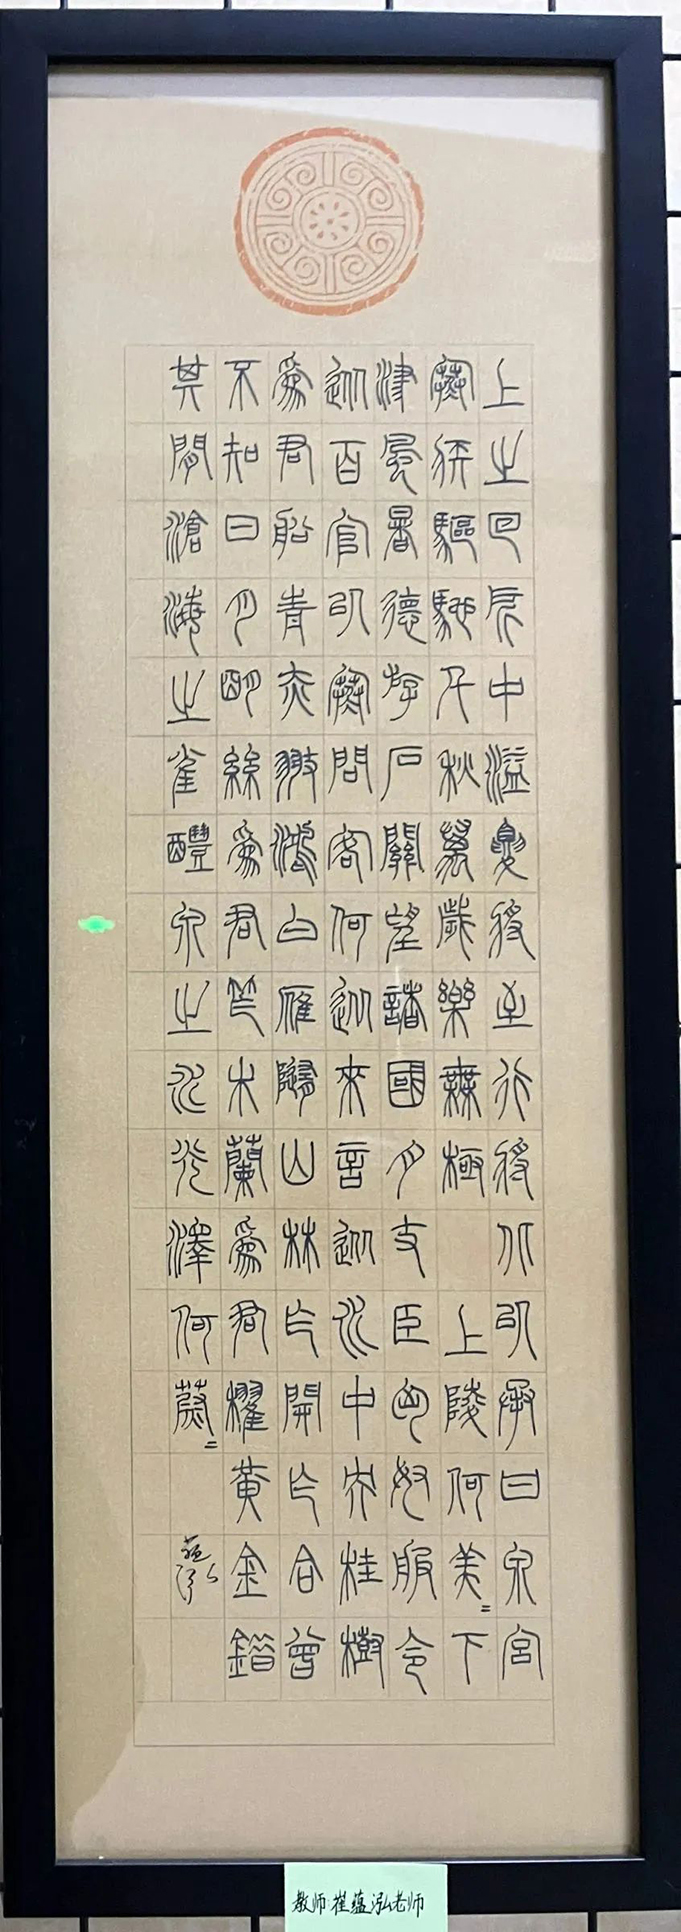 上之回所中溢夏將至行將北以承甘泉宮
寒疾驅馳千秋萬歲樂無極 上陵何美=下
津風暑德游石關望諸國月支臣匈奴服令
從百官以寒問客何從來言從水中央桂樹
為君船青赤翅鴻白雁隨山林乍開乍合曾
不知日月明絲為君笮木蘭為君櫂黃金錯
其間滄海之雀醴泉之水光澤何蔚=
蘊泓
教师:崔蕴泓老师